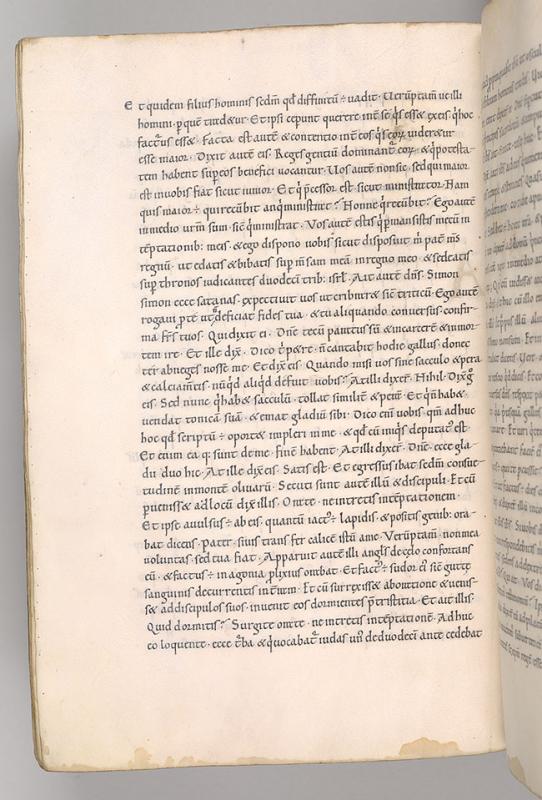 Et quidem filius hominis sedm qd diffinitū ÷ vadit. Verūptam̄ ue illi
homini. p̱ quē tradetur. Et ipsi cepunt querere int̄ se q̇s esset ex eis q̇ hoc
facturus esset. Facta est autē & contentio int̄ eos q̇s eoꝝ uideretur
esse maior. Dixit autē eis. Reges gentiū dominant᷑ eoꝝ. & q̇ potesta-
tem habent sup̱ eos benefici uocantur. Vos autē non sic. sed qui maior
est in uobis fiat sicut iunior. Et q̇ p̄cessor est sicut ministrator. Nam
quis maior ÷ qui recūbit an q̇ ministrat? Nonne q̇ recūbit? Ego autē
in medio urm̄ sum sic̄ q̇ ministrat. Vos autē estis q̇ p̱mansistis mecū in
tēptationib: meis. & ego dispono uobis sicut disposuit m̄ pat̄ ms̄
regnū. ut edatis & bibatis sup̱ m̄sam meā in regno meo. & sedeatis
sup̱ thronos iudicantes duodecī trib: isrł. Ait autē dn̄s. Simon
simon ecce satanas expectiuit uos ut cribraret sic̄ triticū. Ego autē
rogaui p̱ te ut ñ deficiat fides tua. & tu aliquando conuersus confir-
ma fr̄s tuos. Qui dixit ei. Dn̄e tecū paratus sū & in carcerē & in mor-
tem ire. Et ille dix̄. Dico t̄ petre. n̄ cantabit hodie gallus. donec
ter abneges nosse me. Et dix̄ eis. Quando misi uos sine sacculo & pera
& calciam̄tis. nūq̇d aliq̇d defuit uobis? At illi dixer̄. Nihil. Dix̄ g̊
eis. Sed nunc q̇ habet sacculū. tollat similit̄ & perā. Et q̇ n̄ habet.
uendat tonicā suā. & emat gladiū sibi. Dico em̄ uobis. qm̄ adhuc
hoc qd scriptū ÷ oportet impleri in me. & qd cū iniq̇s deputat᷑ est.
Et enim ea q̄ sunt de me. finē habent. At illi dixer̄. Dn̄e. ecce gla-
dii duo hic. At ille dix̄ eis. Satis est. Et egressus ibat sedm consue-
tudinē in montē oliuarū. Secuti sunt autē illū & discipuli. Et cū
p̱uenisset ad locū dix̄ illis. Orate. ne intretis in tēptationem.
Et ipse auulsus ÷ ab eis. quantū iact᷑ ÷ lapidis. & positis genib: ora-
bat dicens. Pater. si uis transfer calicē istū a me. Verūptam̄. non mea
uoluntas. sed tua fiat. Apparuit autē illi angls̄ de celo confortans
eū. & factus ÷ in agonia. prolixius orabat. Et fact᷑ ÷ sudor ei᷑ sic̄ gutte
sanguinis decurrentis in t̄ram. Et cū surrexisset ab oratione & uenis-
set ad discipulos suos. inuenit eos dormientes p̄ tristitia. Et ait illis.
Quid dormitis? Surgite orate. ne intretis in tēptationē. Adhuc
eo loquente. ecce t̄ba & q̇ uocabat᷑ iudas un᷑ de duodecī ante cedebat